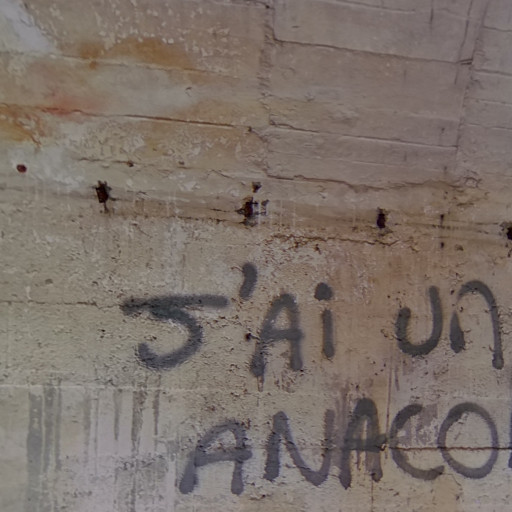 J'Ai Un
ANACO